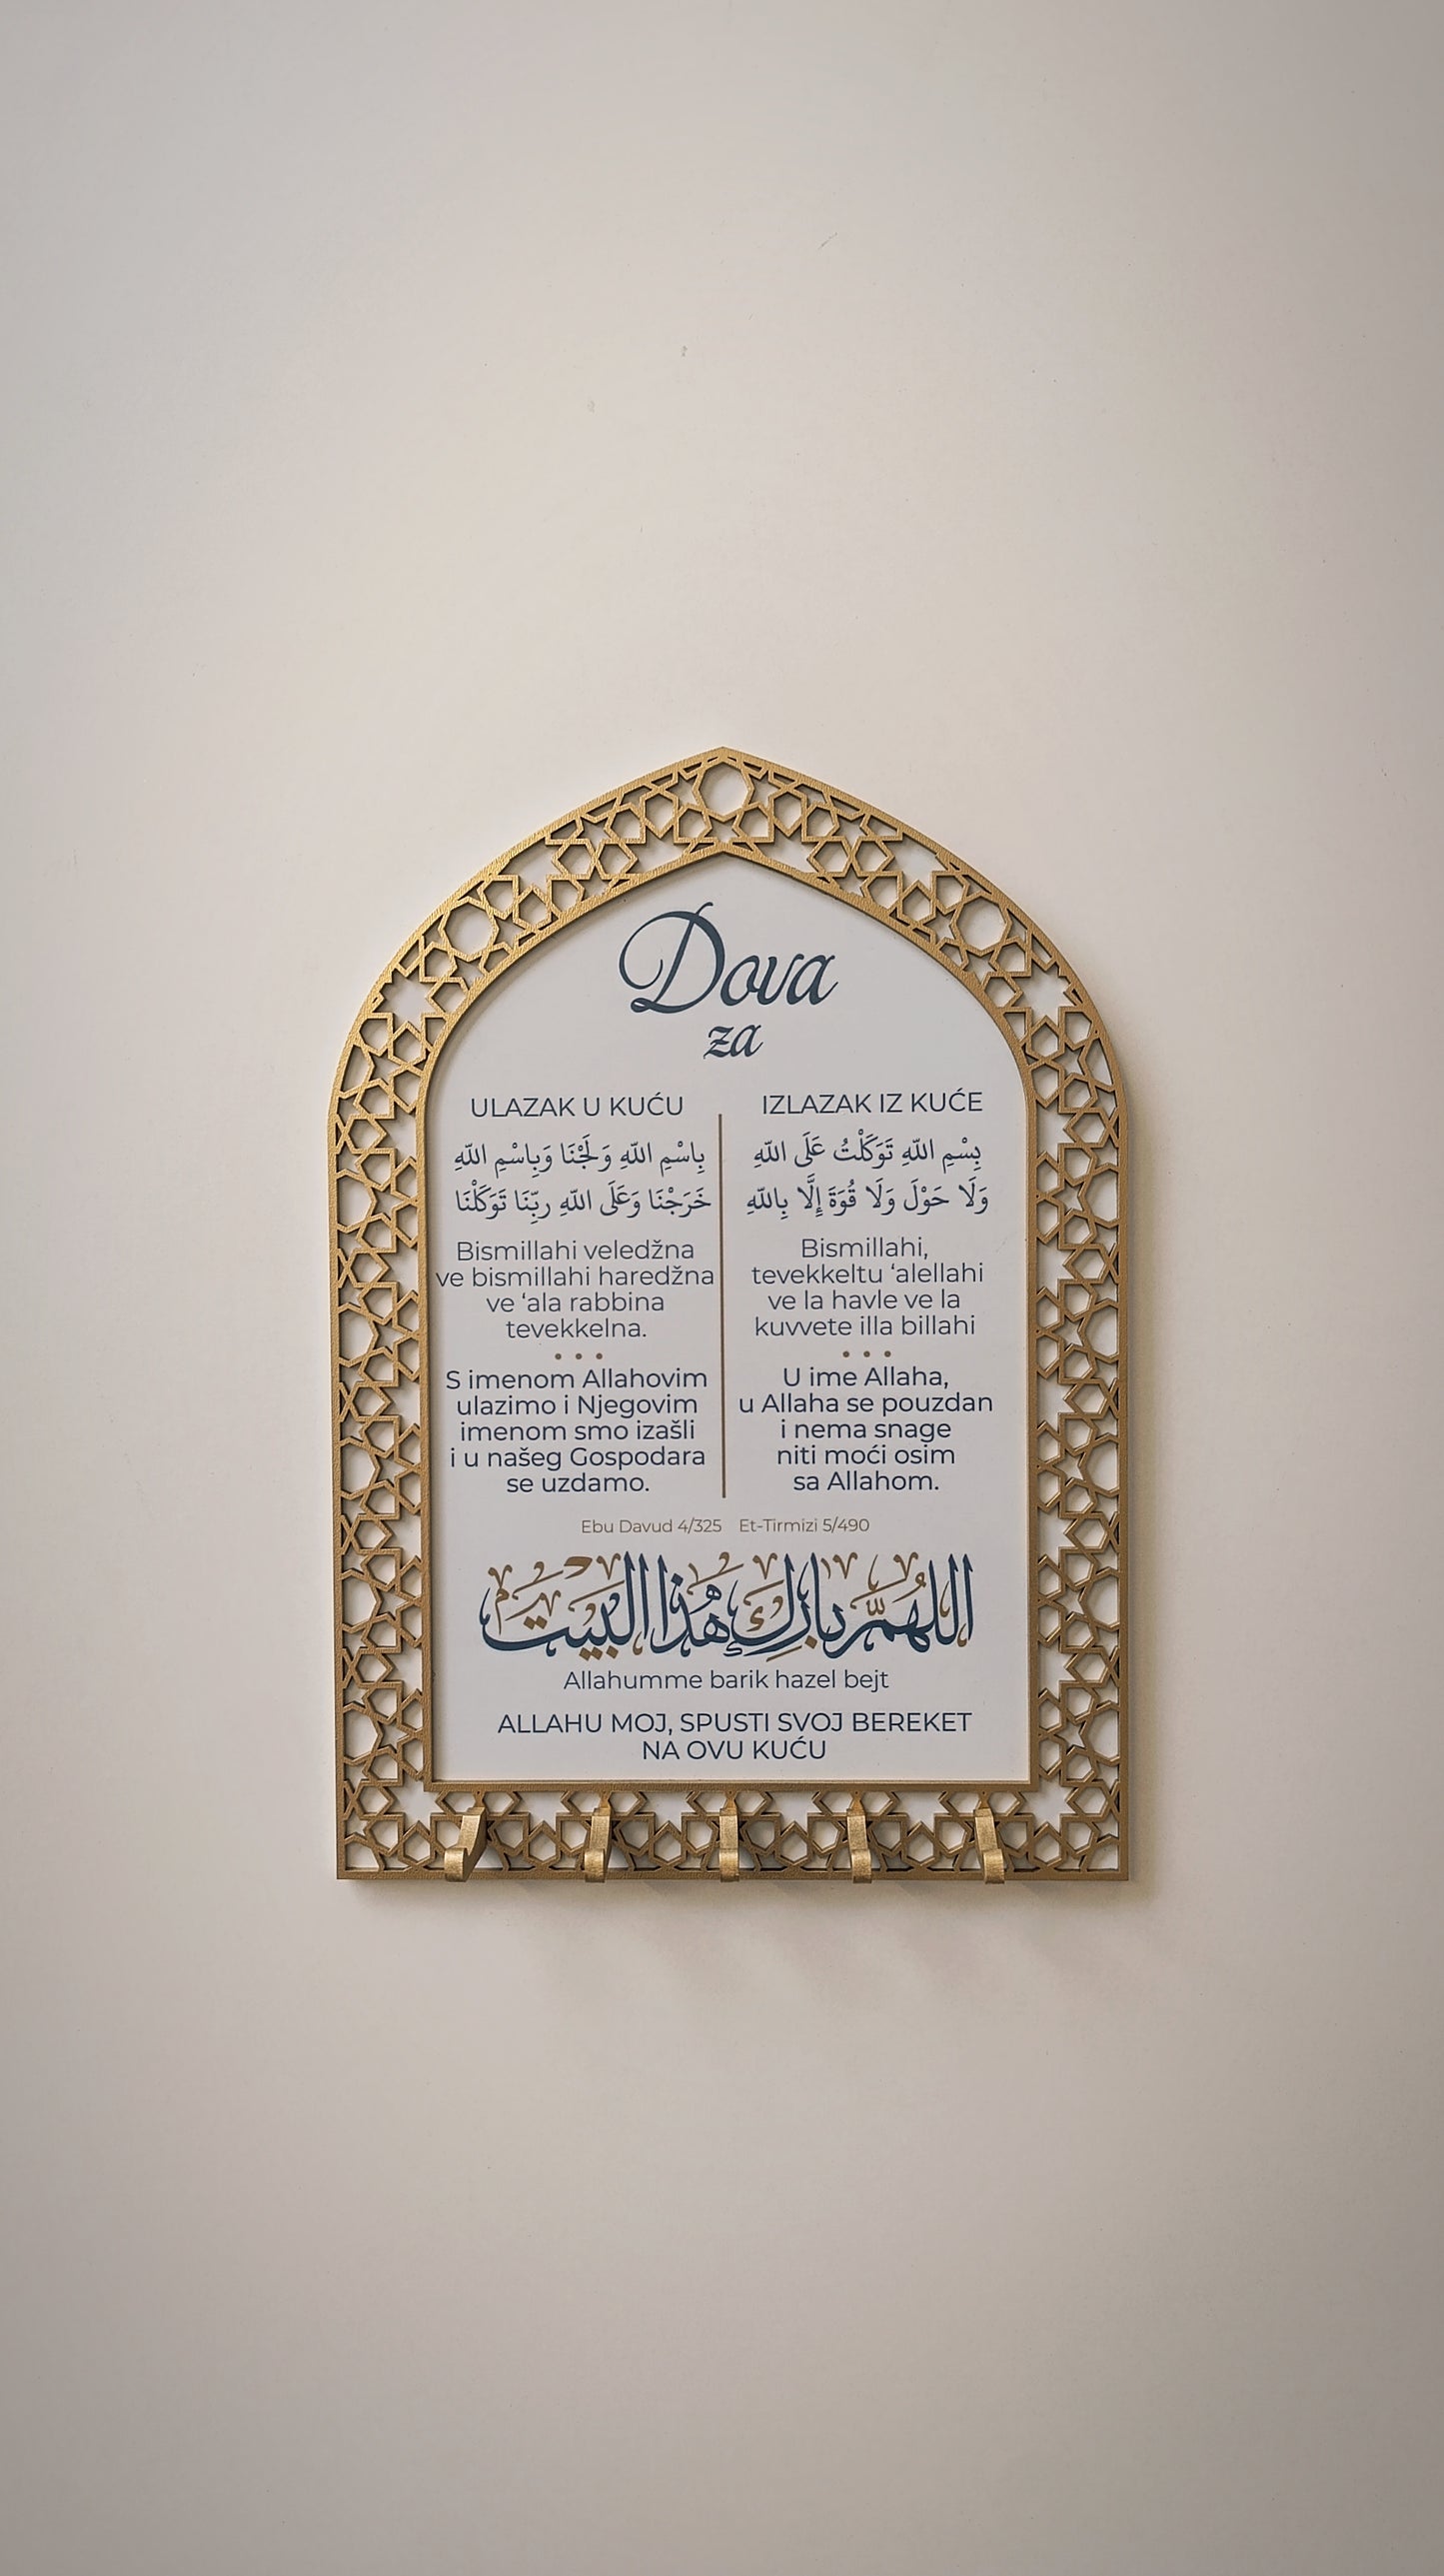 Dova
za
ULAZAK U KUĆU
بِاسْمِ اللّهِ وَلَجْنَا وَبِاسْمِ اللّهِ
خَرَجْنَا وَعَلَى اللّهِ ربِّنَا تَوَكَلْنَا
Bismillahi veledžna
ve bismillahi haredžna
ve ‘ala rabbina
tevekkelna.
S imenom Allahovim
ulazimo i Njegovim
imenom smo izašli
i u našeg Gospodara
se uzdamo.
IZLAZAK IZ KUĆE
بِسْمِ اللّهِ تَوَكَلْتُ عَلَى اللّهِ
وَلَا حَوْلَ وَلَا قُوَةَ إِلَّا بِاللّهِ
Bismillahi,
tevekkeltu ‘alellahi
ve la havle ve la
kuvvete illa billahi
U ime Allaha,
u Allaha se pouzdan
i nema snage
niti moći osim
sa Allahom.
Ebu Davud 4/325 Et-Tirmizi 5/490
اللهُمَّ بارِك هٰذا البَيت
Allahumme barik hazel bejt
ALLAHU MOJ, SPUSTI SVOJ BEREKET
NA OVU KUĆU